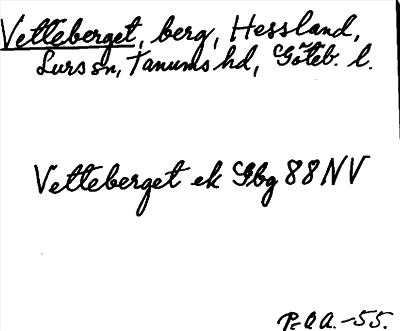 Vetteberget, berg, Hessland,
Lurs sn, Tanums hd, Göteb. l.
Vetteberget ek Gbg 88 NV
P.Q.A.-55.